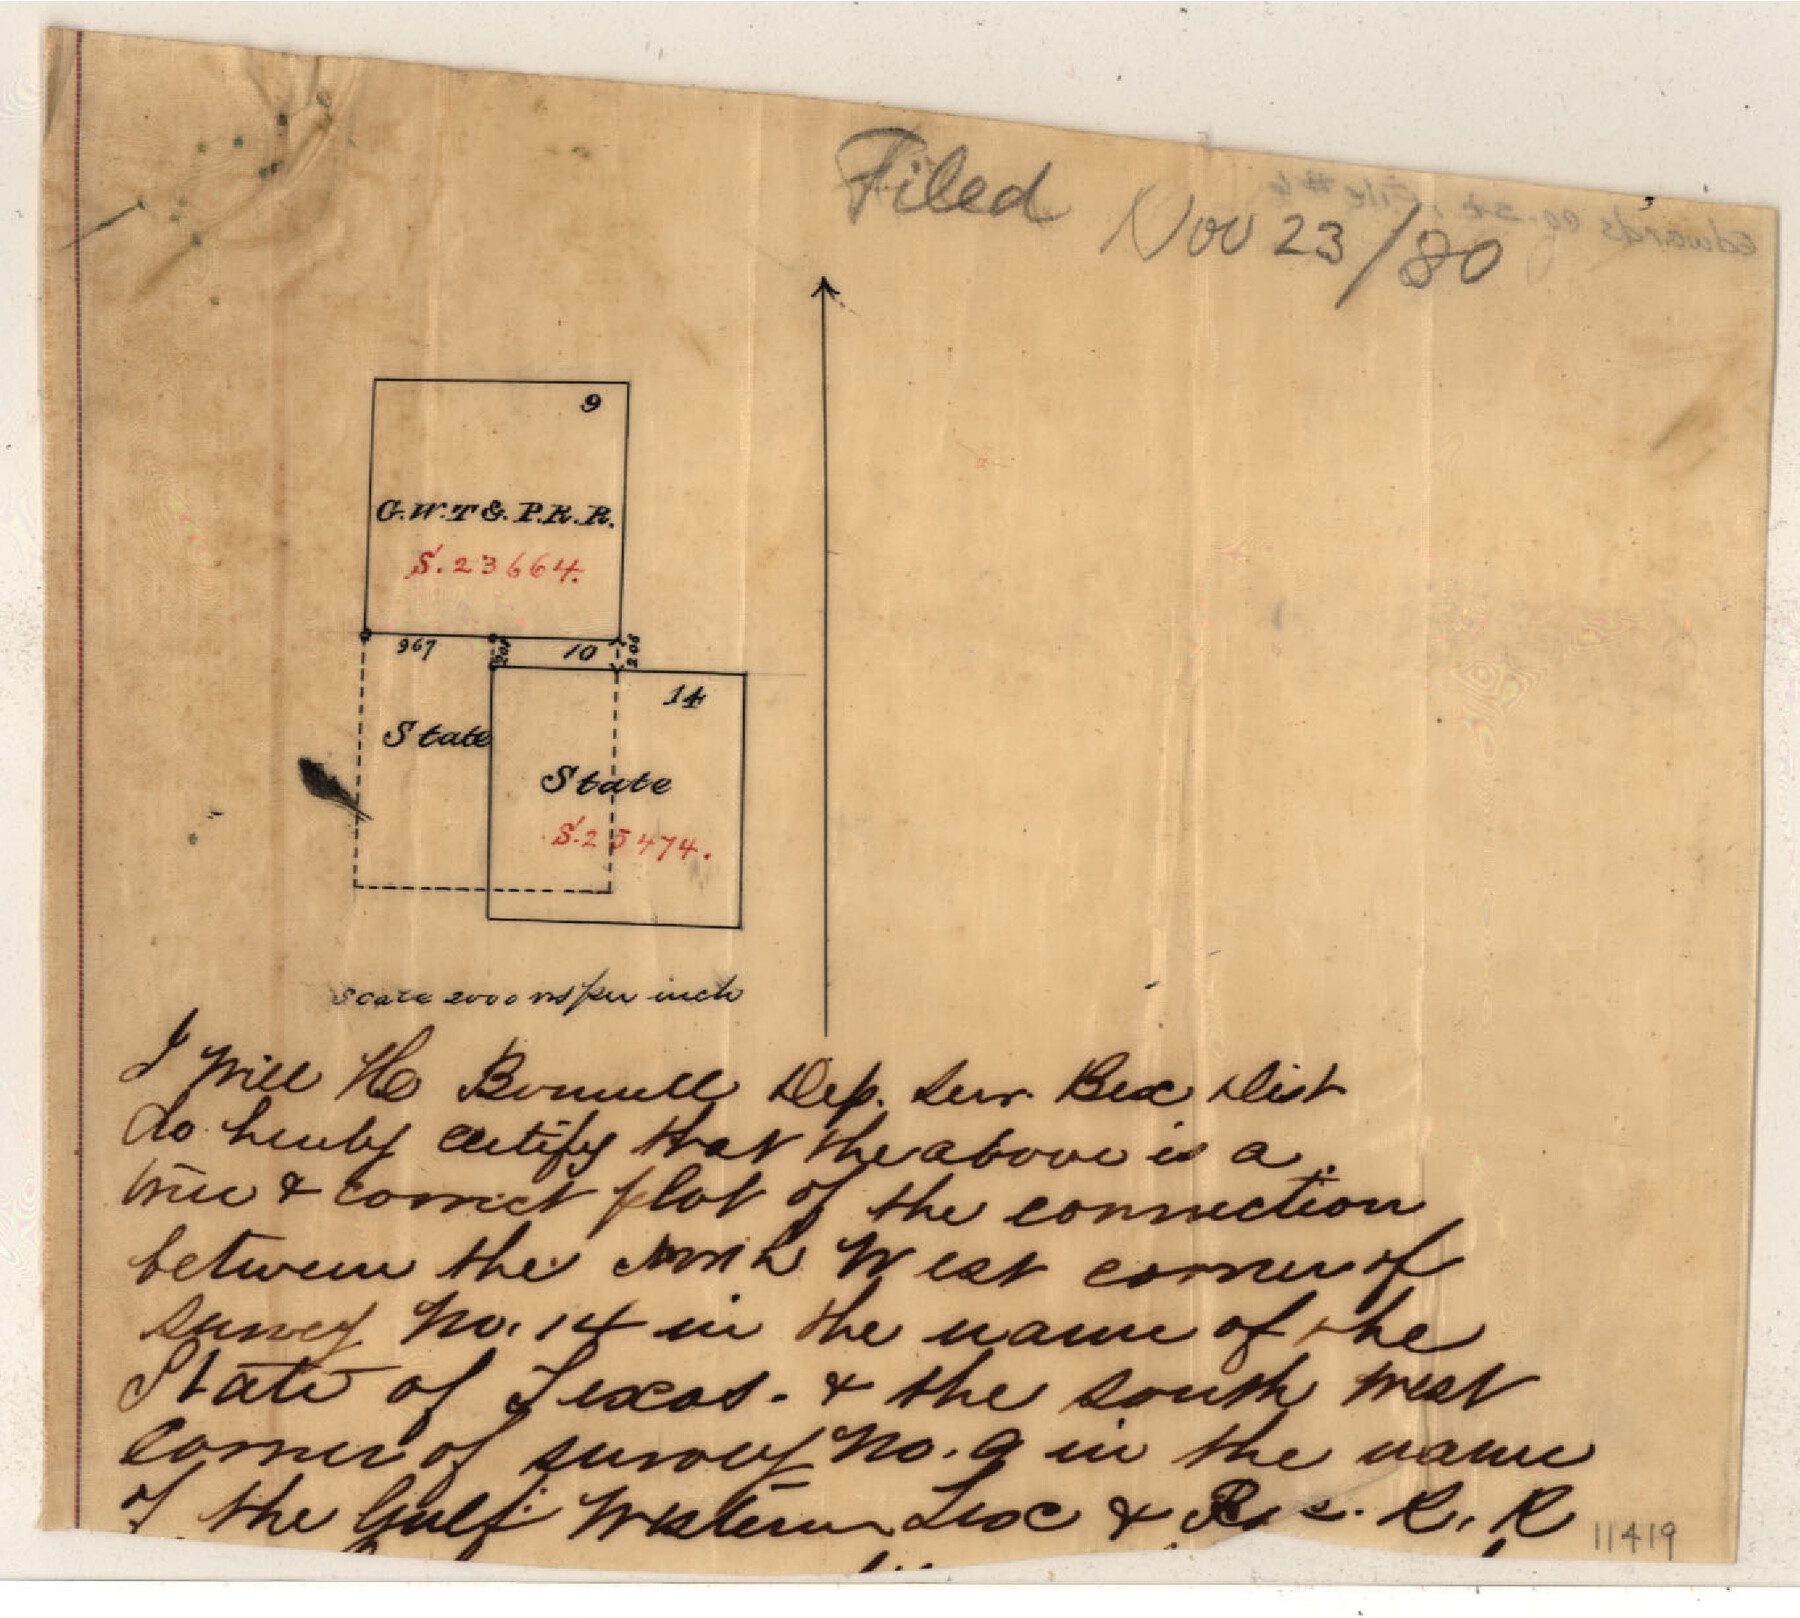 Filed Nov 23/80
Edwards Co. Sk. File #6
9
G.W.T & P.R.R.
S. 23664.
967
208
10
208
14
State
State
S. 25474.
Scale 2000 vrs per inch
I Will H Bonnell Dep. Sur. Bex Dist
do hereby certify that the above is a
true & correct plot of the connection
between the North West corner of
survey No. 14 in the name of the
State of Texas. & the south west
corner of survey No. 9 in the name
of the Gulf Western Tex & Pac. R. R
11419